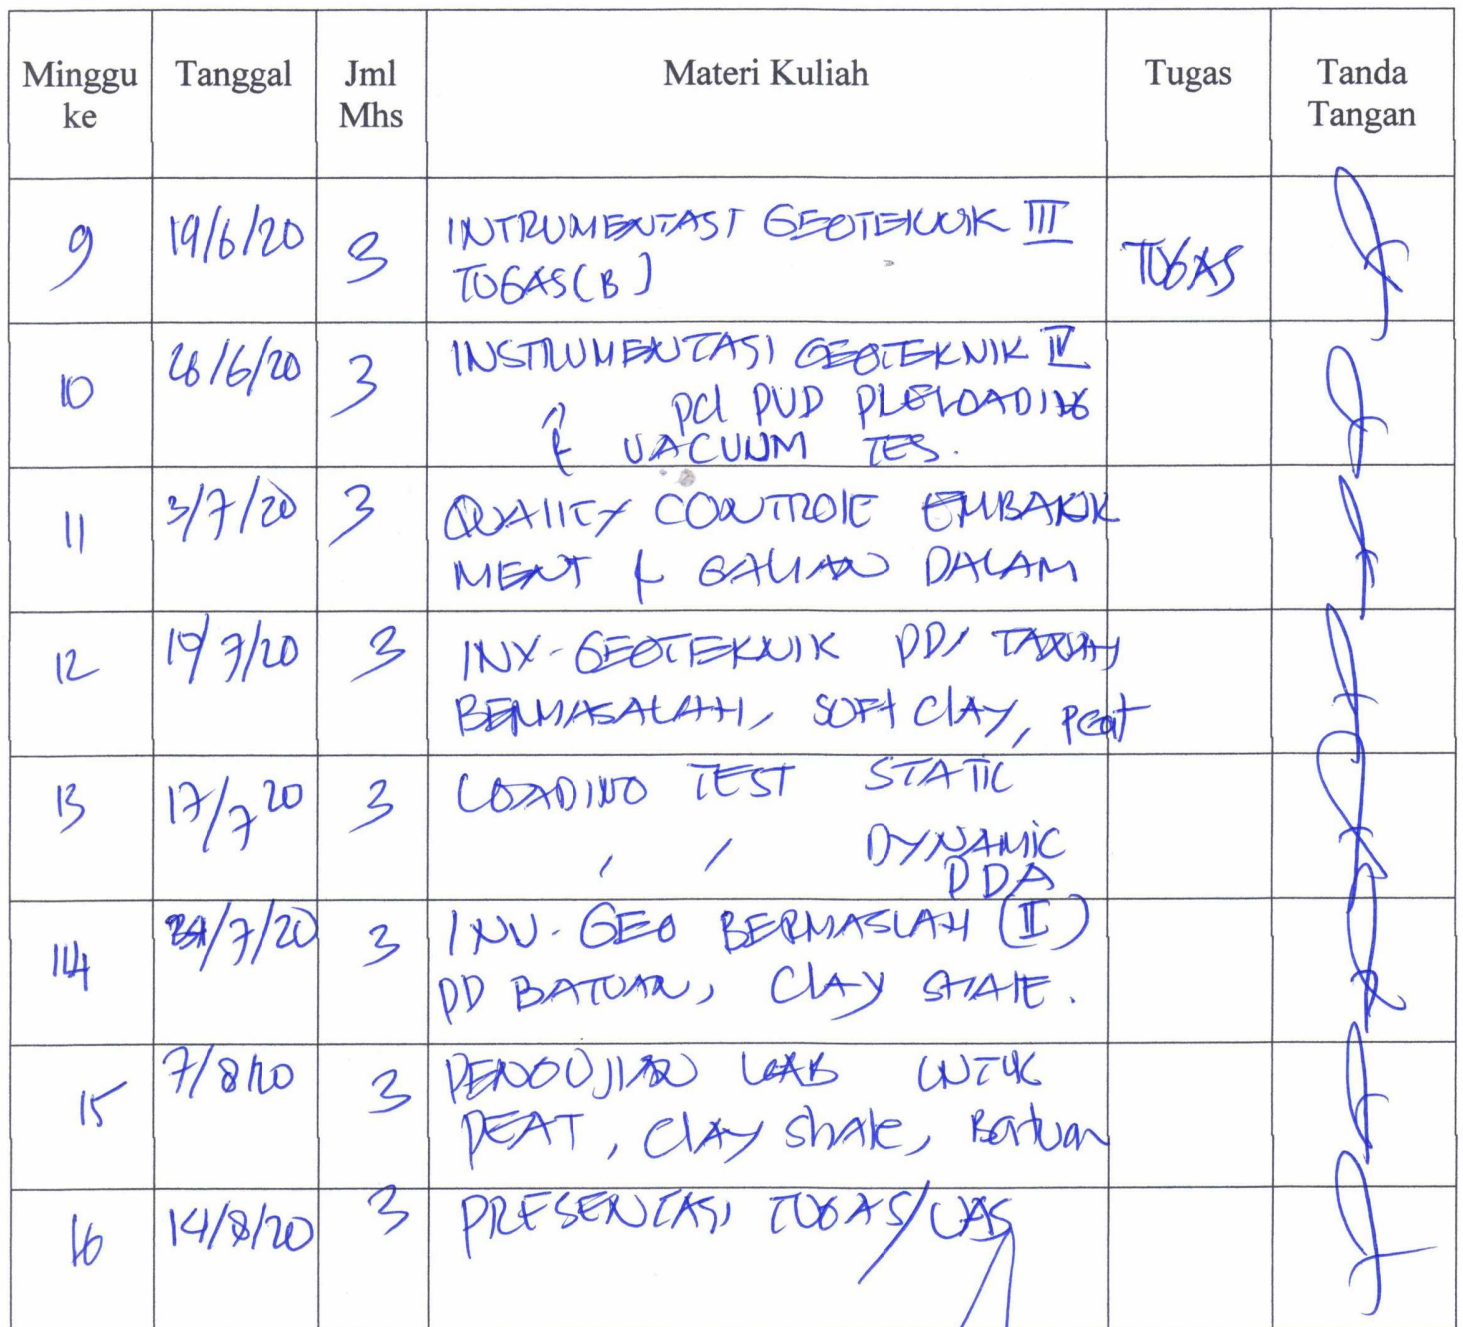 Minggu ke Tanggal Jml Mhs Materi Kuliah Tugas Tanda Tangan
9 19/6/20 3 INTRUMENTASI GEOTEKNIK III TUGAS
TUGAS (B)
10 26/6/20 3 INSTRUMENTASI GEOTEKNIK IV
& pd PVD PRELOADING
VACUUM TES.
11 3/7/20 3 QUALITY CONTROLE EMBANK
MENT & GALIAN DALAM
12 /7/20 3 INV-GEOTEKNIK PD/ TANAH
BERMASALAH, SOFT CLAY, peat
13 17/7 20 3 LOADING TEST STATIC
, / DYNAMIC
PDA
14 /7/20 3 INV. GEO BERMASLAH (II)
PD BATUAN, CLAY SHALE.
15 7/8/20 3 PENGUJIAN LAB UNTUK
PEAT, CLAY Shale, Batuan
16 14/8/20 3 PRESENTASI TUGAS/UAS